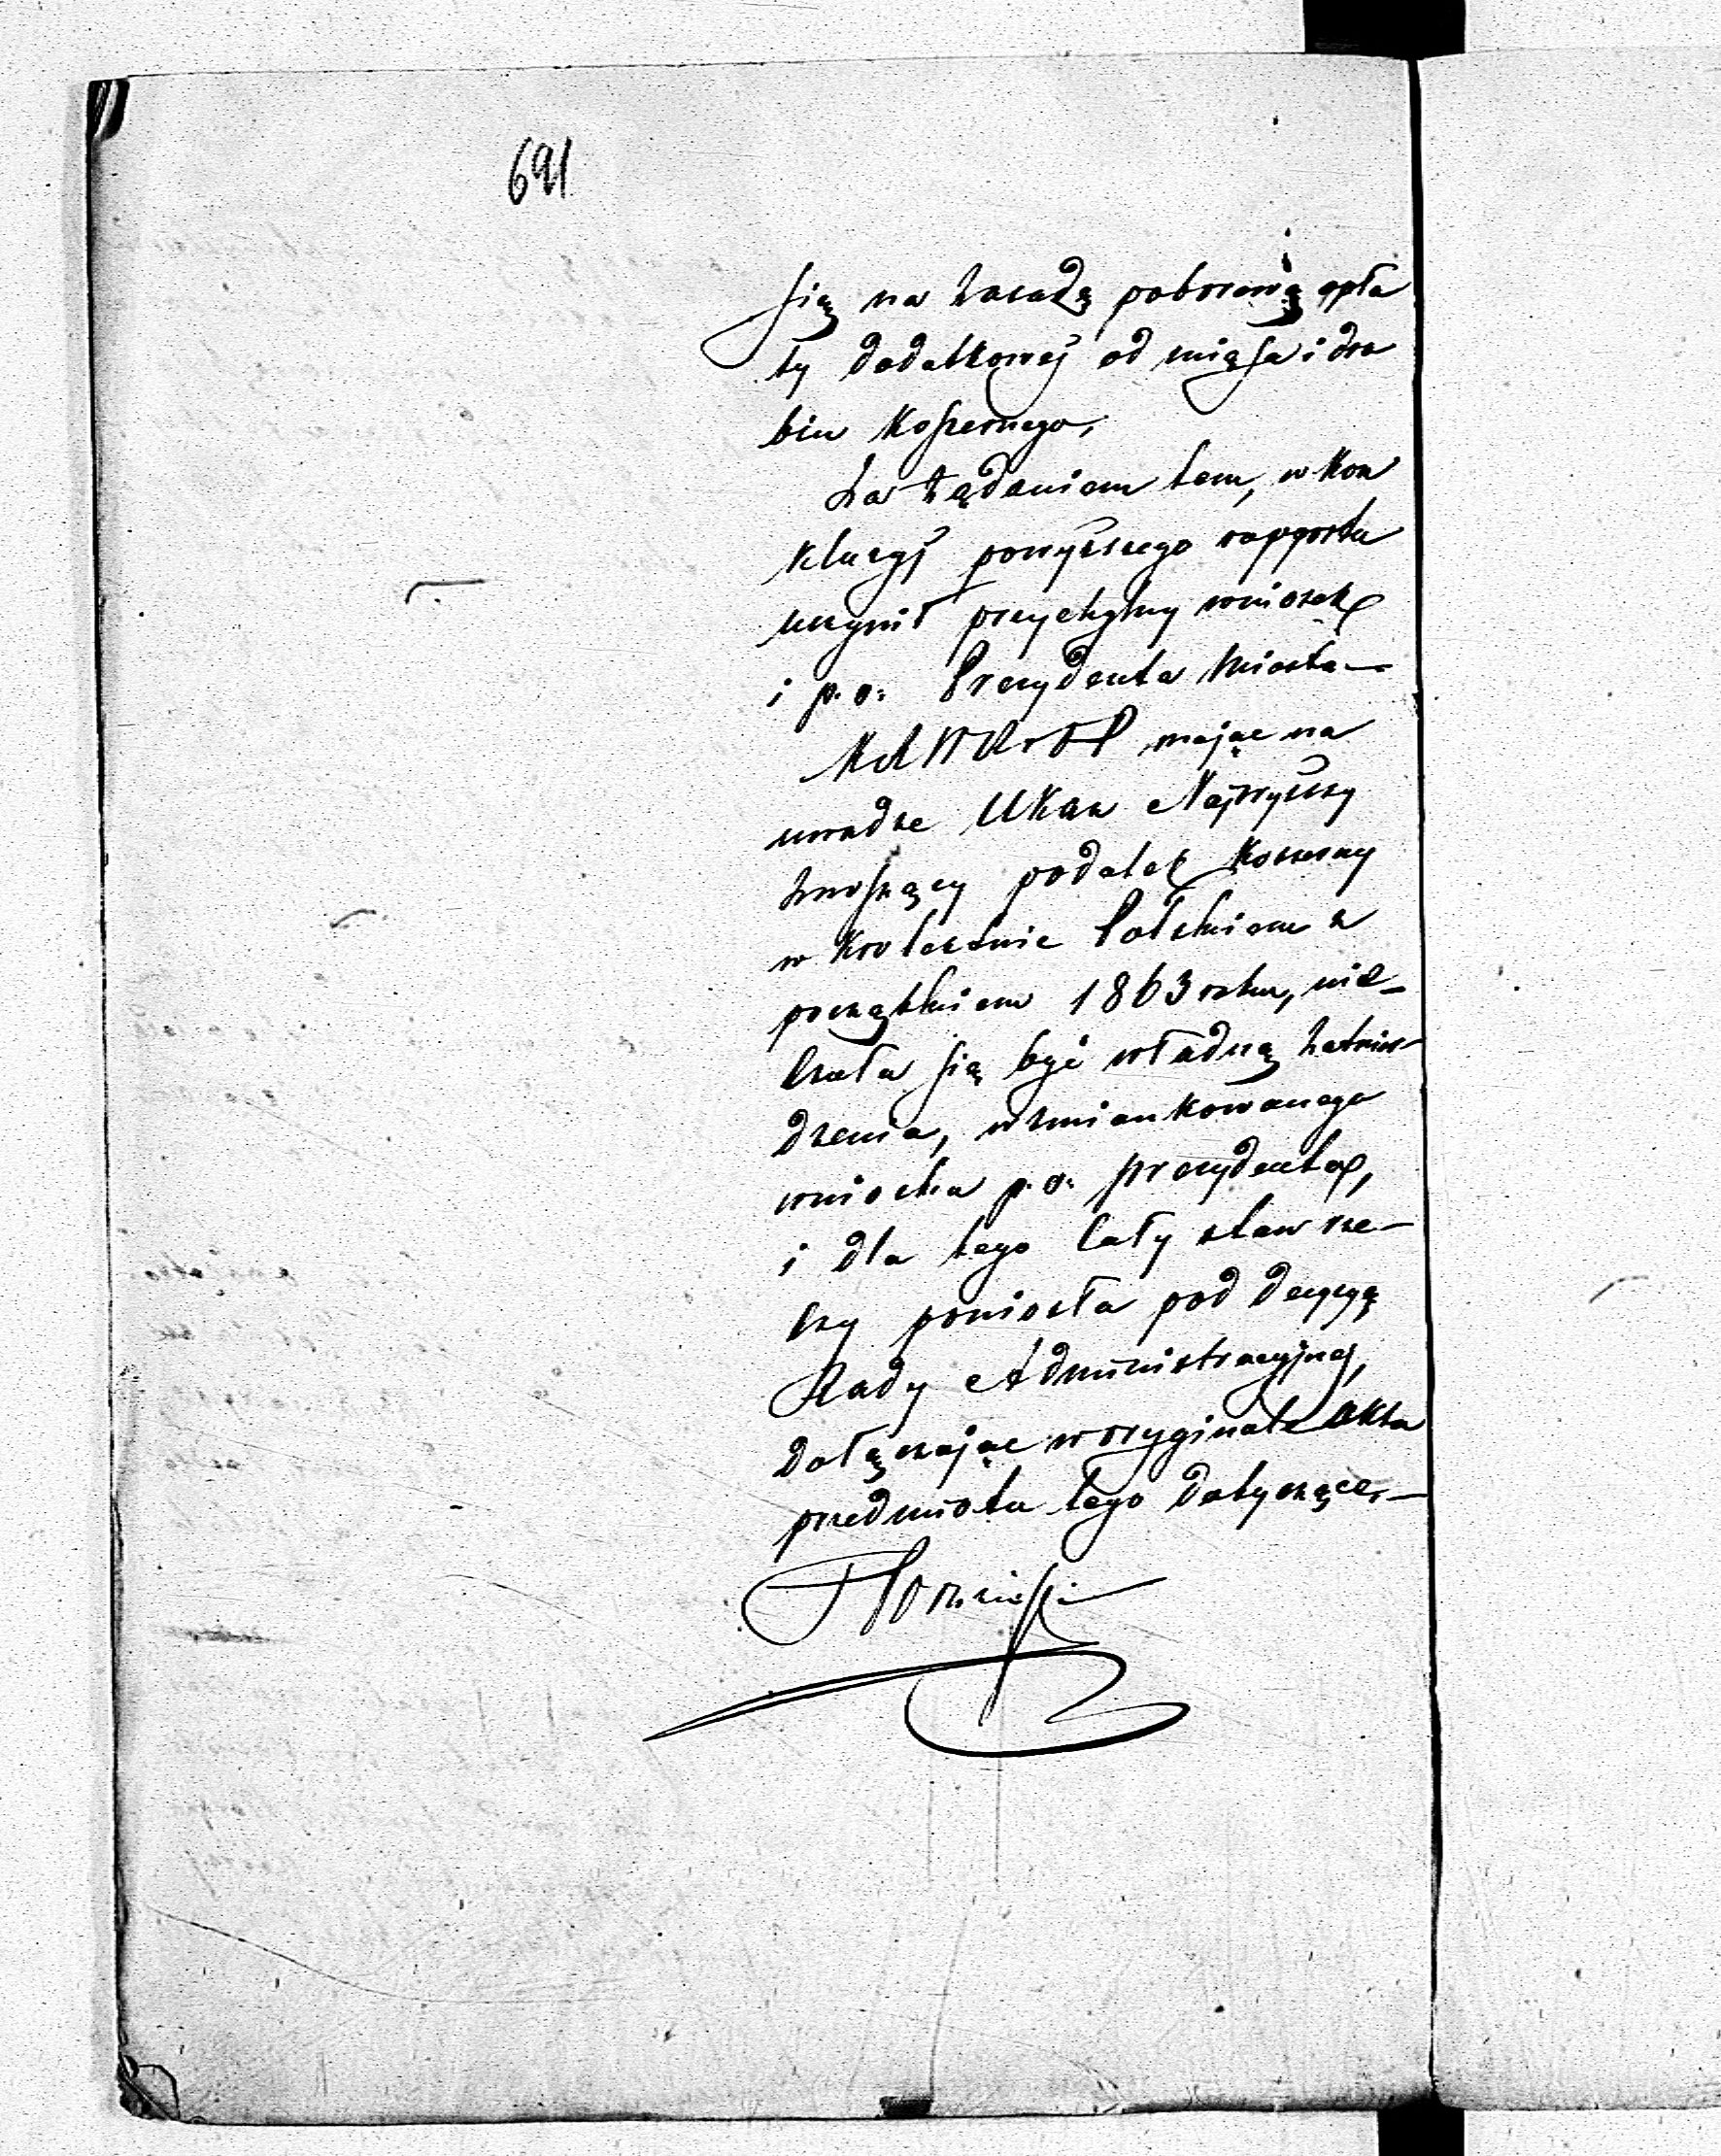 691
się na zasadę poborową opła
ty dodatkowej od mięsa i dro
biu koszernego,
Za żądaniem tem, w kon
kluzyj powyższego rapportu
uczynił przychylny wniosek
i p. o. Prezydenta Miasta —
mając na
uwadze Ukaz Najwyższy
znoszący podatek koszerny
w Krolestwie Polskiem z
początkiem 1863 roku, nie-
czuła się być władną zatwier-
dzenia, wzmiankowanego
wniosku p. o. prezydenta,
i dla tego cały stan rze-
czy poniosła pod decyzyą
Rady Administracyjnej,
dołączając w oryginale akta
przedmiotu tego dotyczące, —